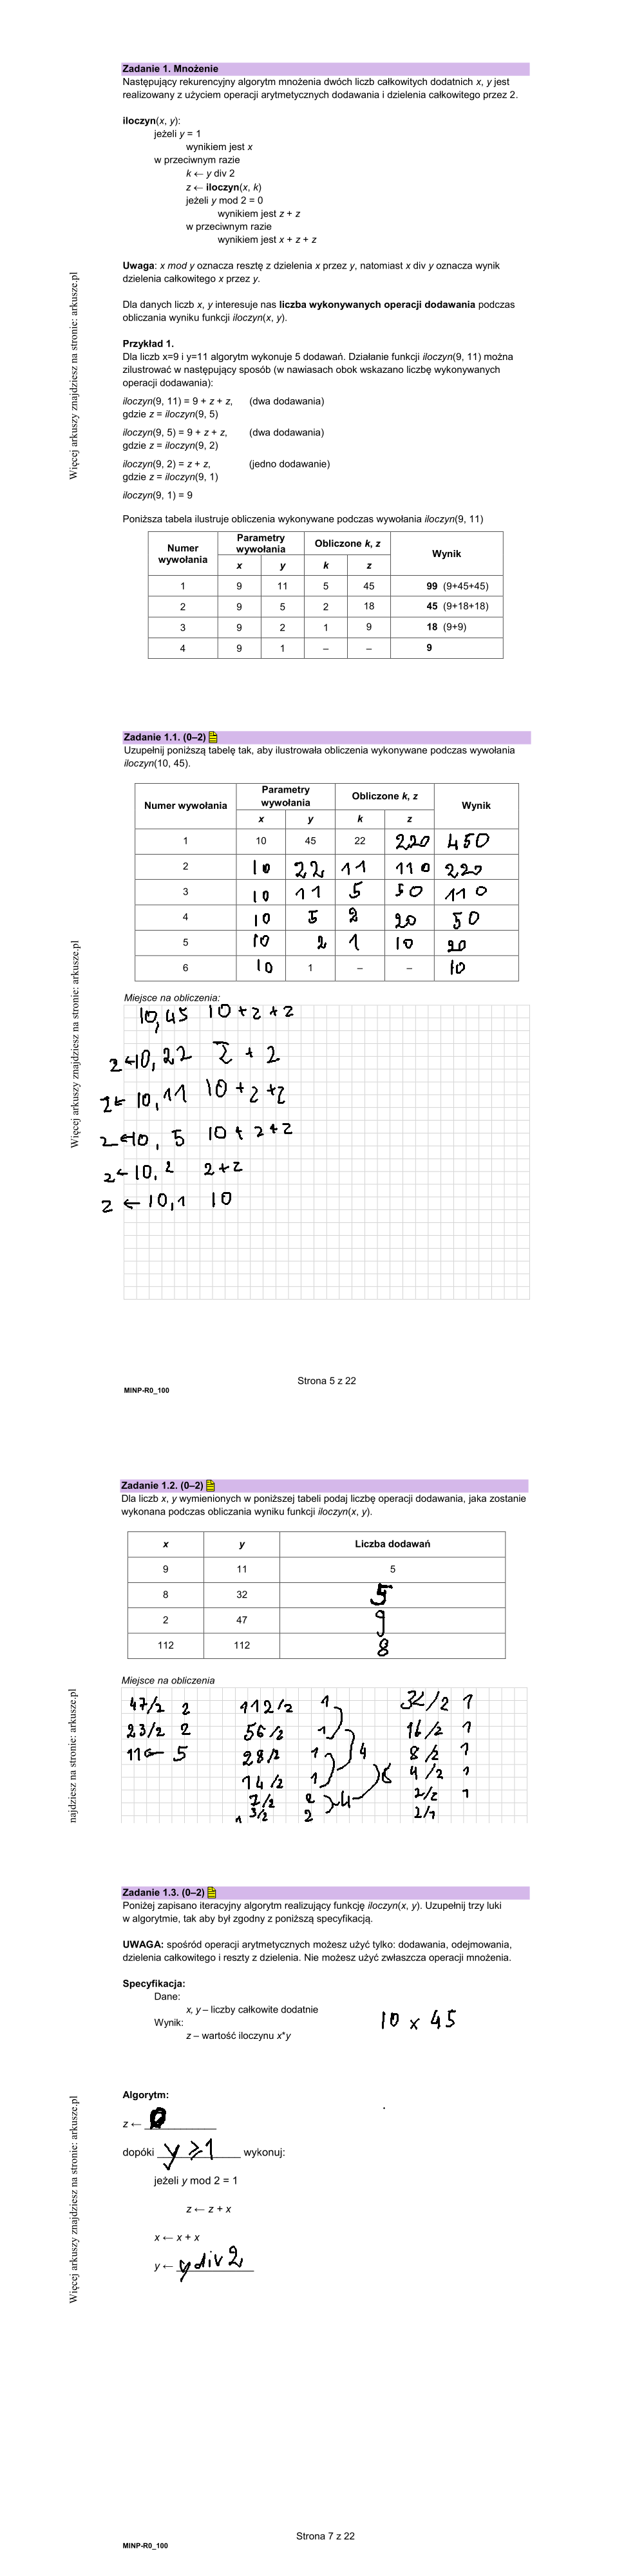 Zadanie 1. Mnożenie
Następujący rekurencyjny algorytm mnożenia dwóch liczb całkowitych dodatnich x, y jest
realizowany z użyciem operacji arytmetycznych dodawania i dzielenia całkowitego przez 2.
iloczyn(x, y):
jeżeli y = 1
wynikiem jest x
w przeciwnym razie
k ← y div 2
z ← iloczyn(x, k)
jeżeli y mod 2 = 0
wynikiem jest z + z
w przeciwnym razie
wynikiem jest x + z + z
Uwaga: x mod y oznacza resztę z dzielenia x przez y, natomiast x div y oznacza wynik
dzielenia całkowitego x przez y.
Dla danych liczb x, y interesuje nas liczba wykonywanych operacji dodawania podczas
obliczania wyniku funkcji iloczyn(x, y).
Przykład 1.
Dla liczb x=9 i y=11 algorytm wykonuje 5 dodawań. Działanie funkcji iloczyn(9, 11) można
zilustrować w następujący sposób (w nawiasach obok wskazano liczbę wykonywanych
operacji dodawania):
iloczyn(9, 11) = 9 + z + z, (dwa dodawania)
gdzie z = iloczyn(9, 5)
iloczyn(9, 5) = 9 + z + z, (dwa dodawania)
gdzie z = iloczyn(9, 2)
iloczyn(9, 2) = z + z, (jedno dodawanie)
gdzie z = iloczyn(9, 1)
iloczyn(9, 1) = 9
Poniższa tabela ilustruje obliczenia wykonywane podczas wywołania iloczyn(9, 11)
Numer wywołania Parametry wywołania Obliczone k, z Wynik
x y k z
1 9 11 5 45 99 (9+45+45)
2 9 5 2 18 45 (9+18+18)
3 9 2 1 9 18 (9+9)
4 9 1 – – 9
Więcej arkuszy znajdziesz na stronie: arkusze.pl
Zadanie 1.1. (0–2)
Uzupełnij poniższą tabelę tak, aby ilustrowała obliczenia wykonywane podczas wywołania
iloczyn(10, 45).
Numer wywołania Parametry wywołania Obliczone k, z Wynik
x y k z
1 10 45 22 220 450
2 10 22 11 110 220
3 10 11 5 50 110
4 10 5 2 20 50
5 10 2 1 10 20
6 10 1 – – 10
Miejsce na obliczenia:
10,45 10+z+z
z←10,22 z + z
z← 10,11 10+z+z
z←10, 5 10+z+z
z←10,2 z+z
z ← 10,1 10
Więcej arkuszy znajdziesz na stronie: arkusze.pl
Strona 5 z 22
MINP-R0_100
Zadanie 1.2. (0–2)
Dla liczb x, y wymienionych w poniższej tabeli podaj liczbę operacji dodawania, jaka zostanie
wykonana podczas obliczania wyniku funkcji iloczyn(x, y).
x y Liczba dodawań
9 11 5
8 32 5
2 47 9
112 112 8
Miejsce na obliczenia
47/2 2 112/2 1 32/2 1
23/2 2 56/2 1 16/2 1
11← 5 28/2 1 4 8/2 1
14/2 1 8 4/2 1
7/2 2 4 2/2 1
3/2 2 2/1
najdziesz na stronie: arkusze.pl
Zadanie 1.3. (0–2)
Poniżej zapisano iteracyjny algorytm realizujący funkcję iloczyn(x, y). Uzupełnij trzy luki
w algorytmie, tak aby był zgodny z poniższą specyfikacją.
UWAGA: spośród operacji arytmetycznych możesz użyć tylko: dodawania, odejmowania,
dzielenia całkowitego i reszty z dzielenia. Nie możesz użyć zwłaszcza operacji mnożenia.
Specyfikacja:
Dane:
x, y – liczby całkowite dodatnie
Wynik:
z – wartość iloczynu x*y
10 x 45
Algorytm:
z ← 0
dopóki y ⩾ 1 wykonuj:
jeżeli y mod 2 = 1
z ← z + x
x ← x + x
y ← y div 2
Więcej arkuszy znajdziesz na stronie: arkusze.pl
Strona 7 z 22
MINP-R0_100